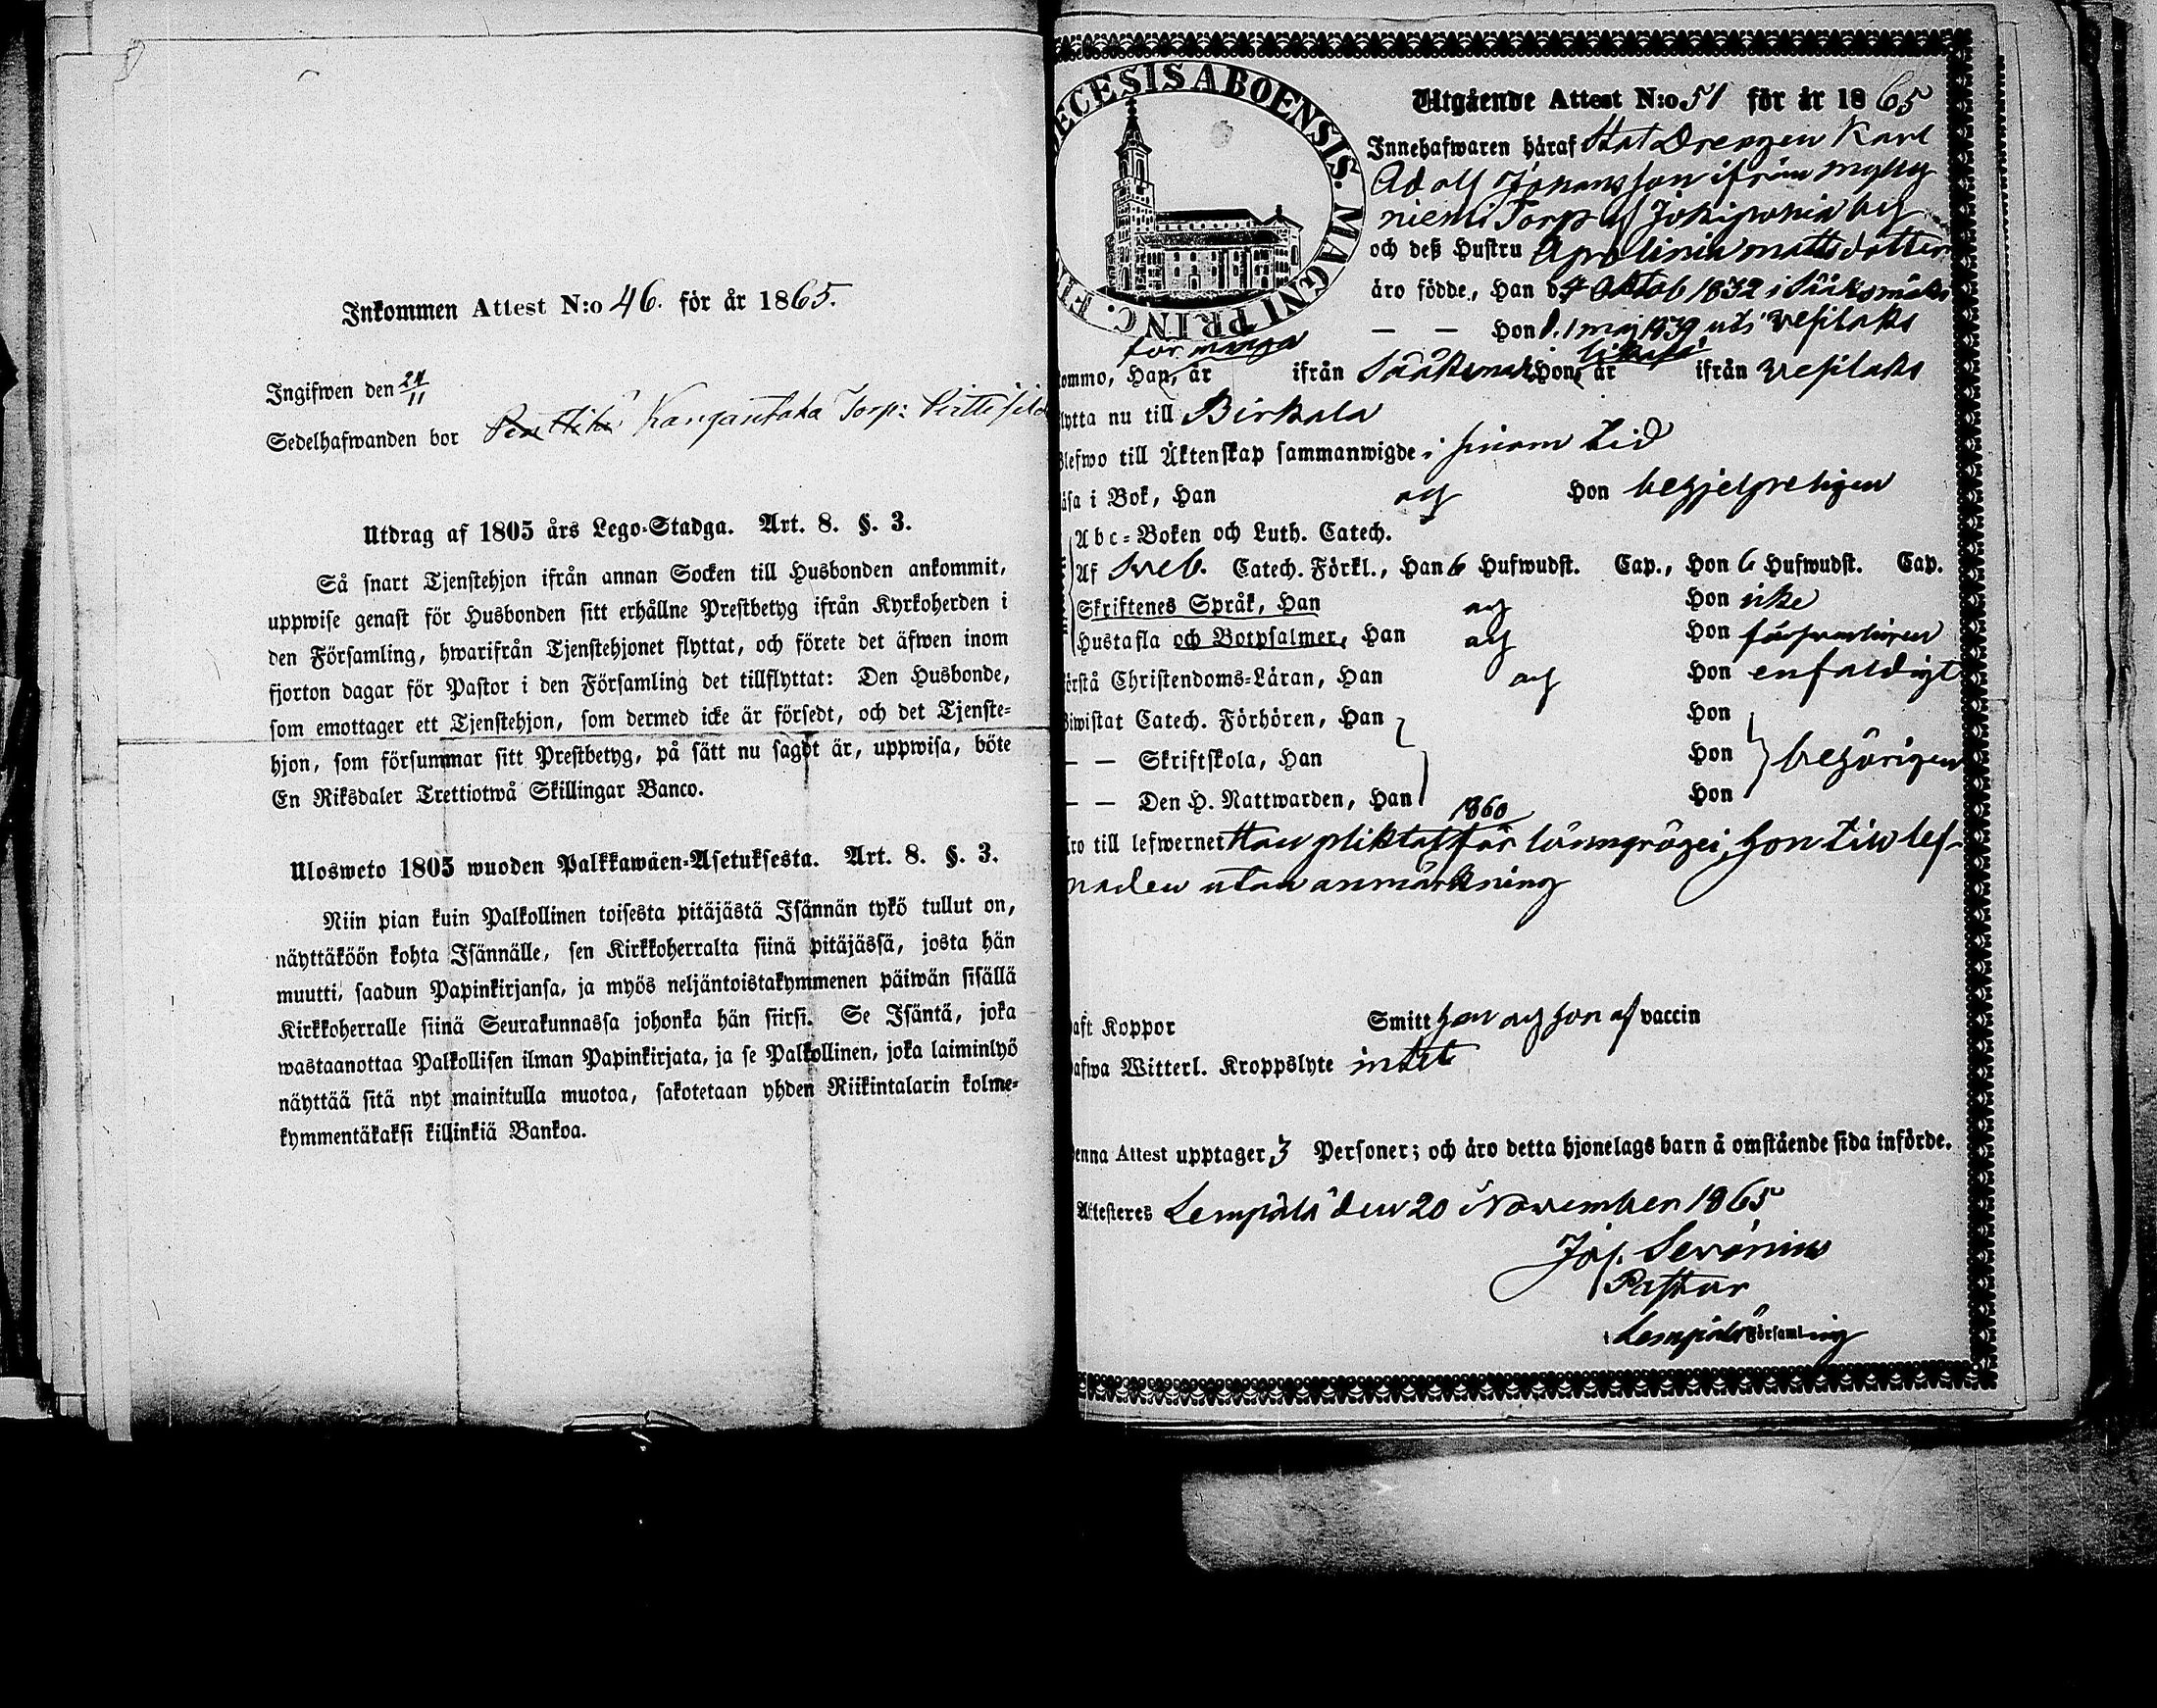 Inkommen Attest N:o 46. för år 1865.
Ingifwen den 24/11
Sedelhafwanden bor Penttilä Kangantaka Torp:
Utdrag af 1805 års Lego-Stadga. Art. 8. §. 3.
Så snart Tjenstehjon ifrån annan Socken till Husbonden ankommit,
uppwise genast för Husbonden sitt erhållne Prestbetyg ifrån Kyrkoherden i
den Församling, hwarifrån Tjenstehjonet flyttat, och förete det äfwen inom
fjorton dagar för Pastor i den Församling det tillflyttat: Den Husbonde,
som emottager ett Tjenstehjon, som dermed icke är försedt, och det Tjenste-
hjon, som försummar sitt Prestbetyg, på sätt nu sagdt är, uppwisa, böte
En Riksdaler Trettiotwå Skillingar Banco.
Ulosweto 1805 wuoden Palkkawäen-Asetuksesta. Art. 8. §. 3.
Niin pian kuin Palkollinen toisesta pitäjästä Isännän tykö tullut on,
näyttäköön kohta Isännälle, sen Kirkkoherralta siinä pitäjässä, josta hän
muutti, saadun Papinkirjansa, ja myös neljäntoistakymmenen päiwän sisällä
Kirkkoherralle siinä Seurakunnassa johonka hän siirsi. Se Isäntä, joka
wastaanottaa Palkollisen ilman Papinkirjata, ja se Palkollinen, joka laiminlyö
näyttää sitä nyt mainitulla muotoa, sakotetaan yhden Riikintalarin kolme-
kymmentäkaksi killinkiä Bankoa.
ECESIS ABOENSIS. MAGNI PRINC. FIN
Utgående Attest N:o 51 för år 1865
Innehafwaren häraf Stat Drengen Karl
Adolf Johansson ifrån Mylly
niemi Torp af Jokipohia by
och deß Hustru Apolinia Mattsdotter
äro födde, Han d. 4 Oktob 1832 i Sääksmäki
— — Hon d. 1 maj 1839 uti Vesilaks
för många
likaså
ommo, Han, år ifrån Sääksmäki, Hon, år ifrån Vesilaks
lytta nu till Birkala
lefwo till Äktenskap sammanwigde i sinom tid
äsa i Bok, Han och Hon behjelpeligen
Abc-Boken och Luth. Catech.
Af Sveb. Catech. Förkl., Han 6 Hufwudst. Cap., Hon 6 Hufwudst. Cap.
Skriftenes Språk, Han och Hon icke
Hustafla och Botpsalmer, Han och Hon försvarligen
örstå Christendoms-Läran, Han och Hon enfaldigt
iwistat Catech. Förhören, Han Hon
— — Skriftskola, Han Hon behörigen
— — Den H. Nattwarden, Han Hon
1860
ro till lefwernet Han pliktat för lönngrägei, hon till lef-
naden utan anmärkning
aft Koppor Smitt han och hon af vaccin
afwa Witterl. Kroppslyte intet
enna Attest upptager 3 Personer; och äro detta hjonelags barn å omstående sida införde.
Attesteres Lempälä den 20 November 1865
Jos. Serenius
Pastor
i Lempälä Församling